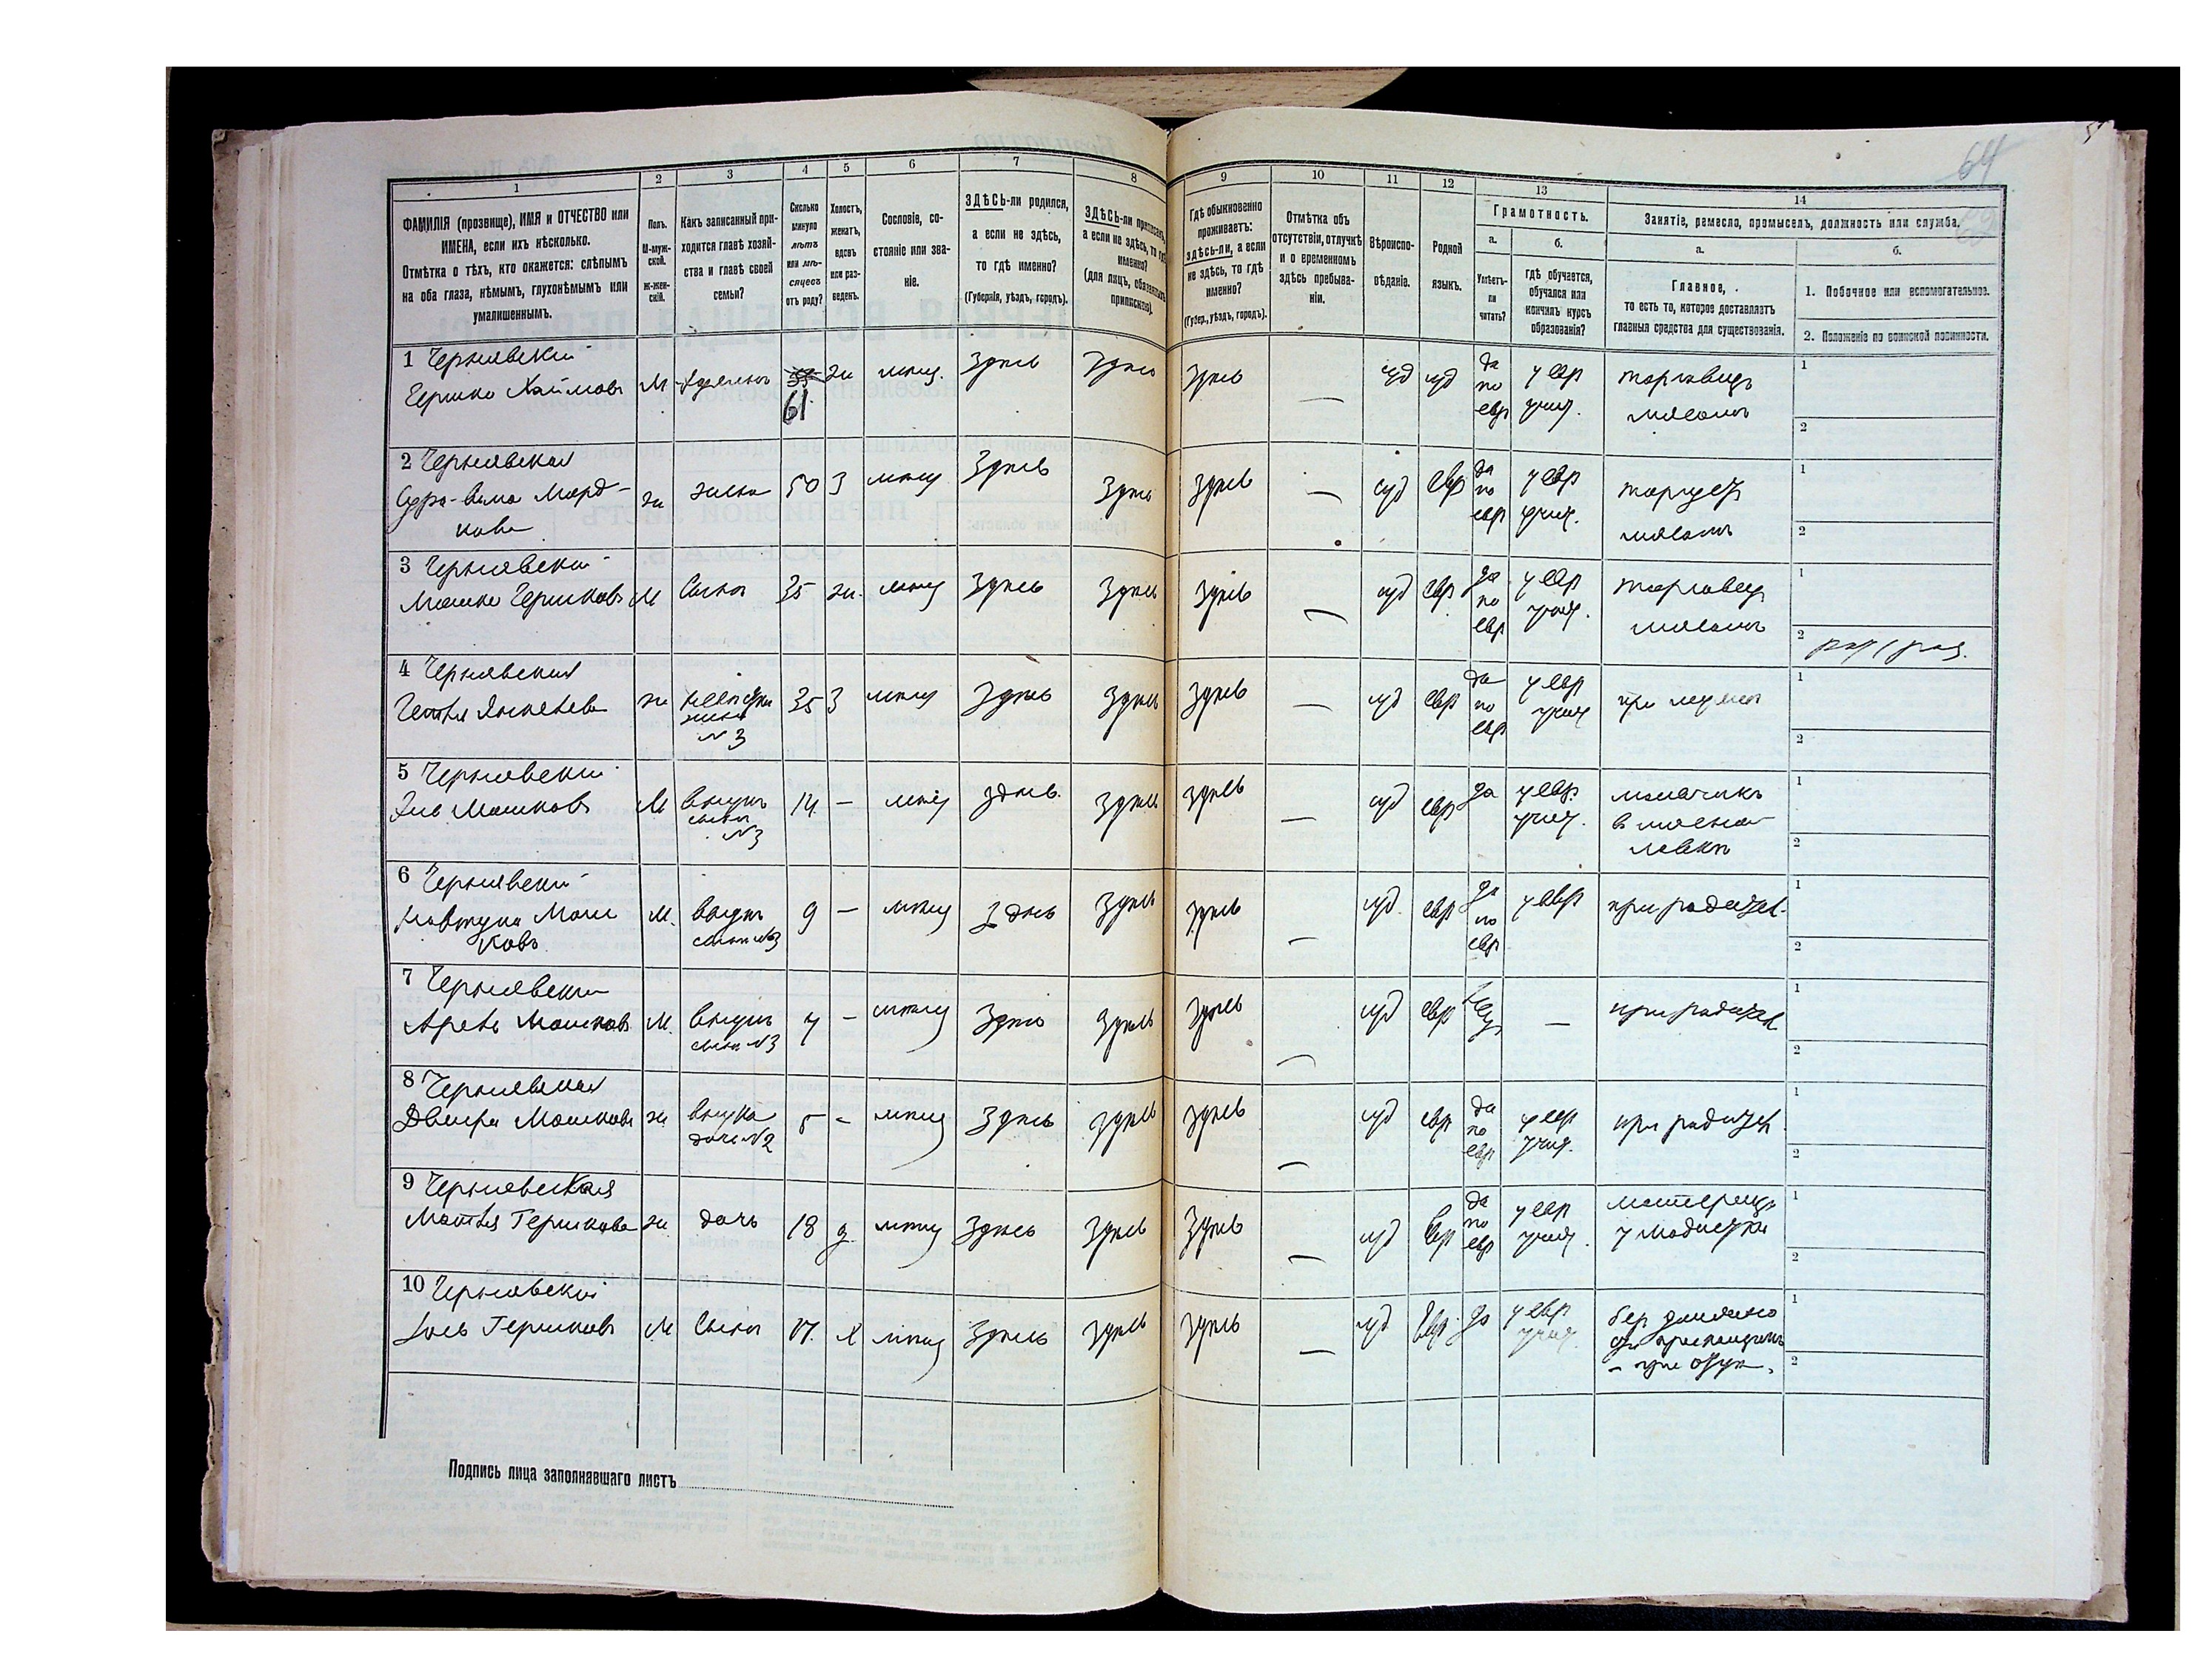 64
1 2 3 4 5 6 7 8 9 10 11 12 13 14
ФАМИЛІЯ (прозвище), ИМЯ и ОТЧЕСТВО или
ИМЕНА, если ихъ нѣсколько.
Отмѣтка о тѣхъ, кто окажется: слѣпымъ
на оба глаза, нѣмымъ, глухонѣмымъ или
умалишеннымъ.
Полъ.
М-муж-
ской.
Ж-жен-
скій.
Какъ записанный при-
ходится главѣ хозяй-
ства и главѣ своей
семьи?
Сколько
минуло
лѣтъ
или мѣ-
сяцевъ
отъ роду?
Холостъ,
женатъ,
вдовъ
или раз-
веденъ.
Сословіе, со-
стояніе или зва-
ніе.
ЗДѢСЬ-ли родился,
а если не здѣсь,
то гдѣ именно?
(Губернія, уѣздъ, городъ).
ЗДѢСЬ-ли приписанъ,
а если не здѣсь, то гдѣ
именно?
(для лицъ, обязанныхъ
припискою).
Гдѣ обыкновенно
проживаетъ:
здѣсь-ли, а если
не здѣсь, то гдѣ
именно?
(Губер., уѣздъ, городъ).
Отмѣтка объ
отсутствіи, отлучкѣ
и о временномъ
здѣсь пребыва-
ніи.
Вѣроиспо-
вѣданіе.
Родной
языкъ.
Грамотность.
а.
Умѣетъ-
ли
читать?
б.
гдѣ обучается,
обучался или
кончилъ курсъ
образованія?
Занятіе, ремесло, промыселъ, должность или служба.
а.
Главное,
то есть то, которое доставляетъ
главныя средства для существованія.
б.
1. Побочное или вспомогательное.
2. Положеніе по воинской повинности.
1 Чернявскій
Гершко Хаимовъ М 61 ж мѣщ. здѣсь здѣсь здѣсь — іуд да по евр у евр учит. торговецъ мясомъ 1 2
2 Чернявская
Морд-
кова ж жена 50 З мѣщ здѣсь здѣсь здѣсь — іуд евр да по евр у евр учит. торгуетъ мясомъ 1 2
3 Чернявскій
Мошко Гершковъ М Сынъ 35 ж. мѣщ здѣсь здѣсь здѣсь — іуд евр да по евр у евр учит. торговецъ мясомъ 1 2
4 Чернявская
ж невѣстка жена №3 35 З мѣщ здѣсь здѣсь здѣсь — іуд евр да по евр у евр учит при мужѣ 1 2
5 Чернявскій
Мошковъ М внукъ сынъ №3 14 — мѣщ здѣсь. здѣсь здѣсь — іуд евр да у евр. учит. мальчикъ в мясной лавкѣ 1 2
6 Чернявскій
Мош
ковъ М. внукъ сынъ №3 9 — мѣщ здѣсь здѣсь здѣсь — іуд. евр да по евр у евр при родител. 1 2
7 Чернявскій
Мошковъ М. внукъ сынъ №3 7 — мѣщ здѣсь здѣсь здѣсь — іуд евр нѣт — при родител 1 2
8 Чернявская
Двейра Мошкова ж внучка дочь №2 5 — мѣщ здѣсь здѣсь здѣсь — іуд евр да по евр у евр учит. при родител 1 2
9 Чернявская
Гершкова ж дочь 18 д. мѣщ здѣсь здѣсь здѣсь — іуд евр да по евр у евр учит. мастерица у модистки 1 2
10 Чернявскій
Гершковъ М Сынъ 17. Х мѣщ здѣсь здѣсь здѣсь — іуд евр. да у евр учит. при отцѣ. 1 2
Подпись лица заполнявшаго листъ